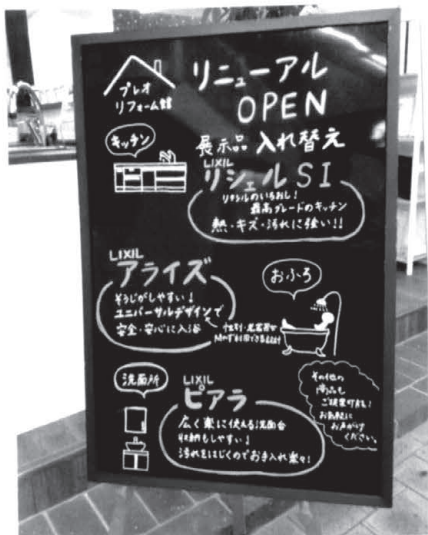 プレオ
リフォーム館
リニューアル
OPEN
展示品入れ替え
キッチン
LIXIL
リシェルSI
リクシルのいちおし!
最高グレードのキッチン
熱・キズ・汚れに強い!!
LIXIL
アライズ
そうじがしやすい!
ユニバーサルデザインで
安全・安心に入浴
おふろ
洗面所
LIXIL
ピアラ
広く楽に使える洗面台
収納もしやすい!
汚れをはじくのでお手入れ楽々!
その他の
商品も
ご提案可能!
お気軽に
お声がけ
ください。